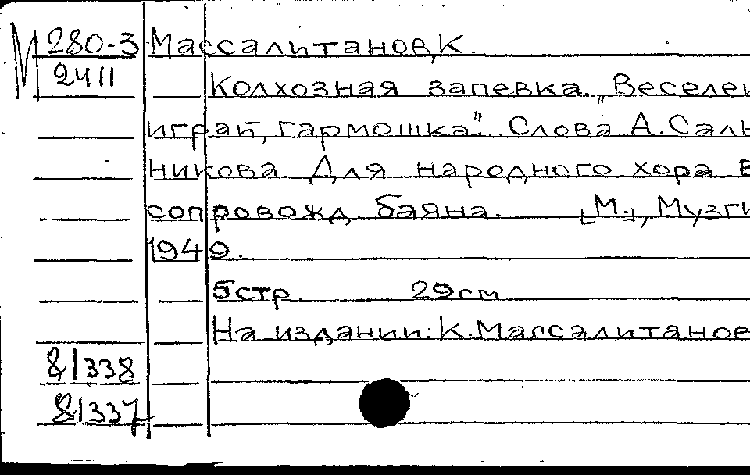 М 280-3 Массалитанов, К.
2411 Колхозная запевка. "Веселей
играй, гармошка". Слова А. Саль
никова Для народного хора в
сопровожд. баяна. [М.], Музги
1949.
5стр. 29см
На издании: К. Массалитанов
81338
81337